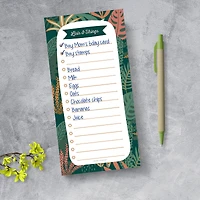 Lists & Things
Buy Mom's baby sand
Buy stamps
Bread
Milk
Eggs
Oats
Chocolate chips
Bananas
Juice